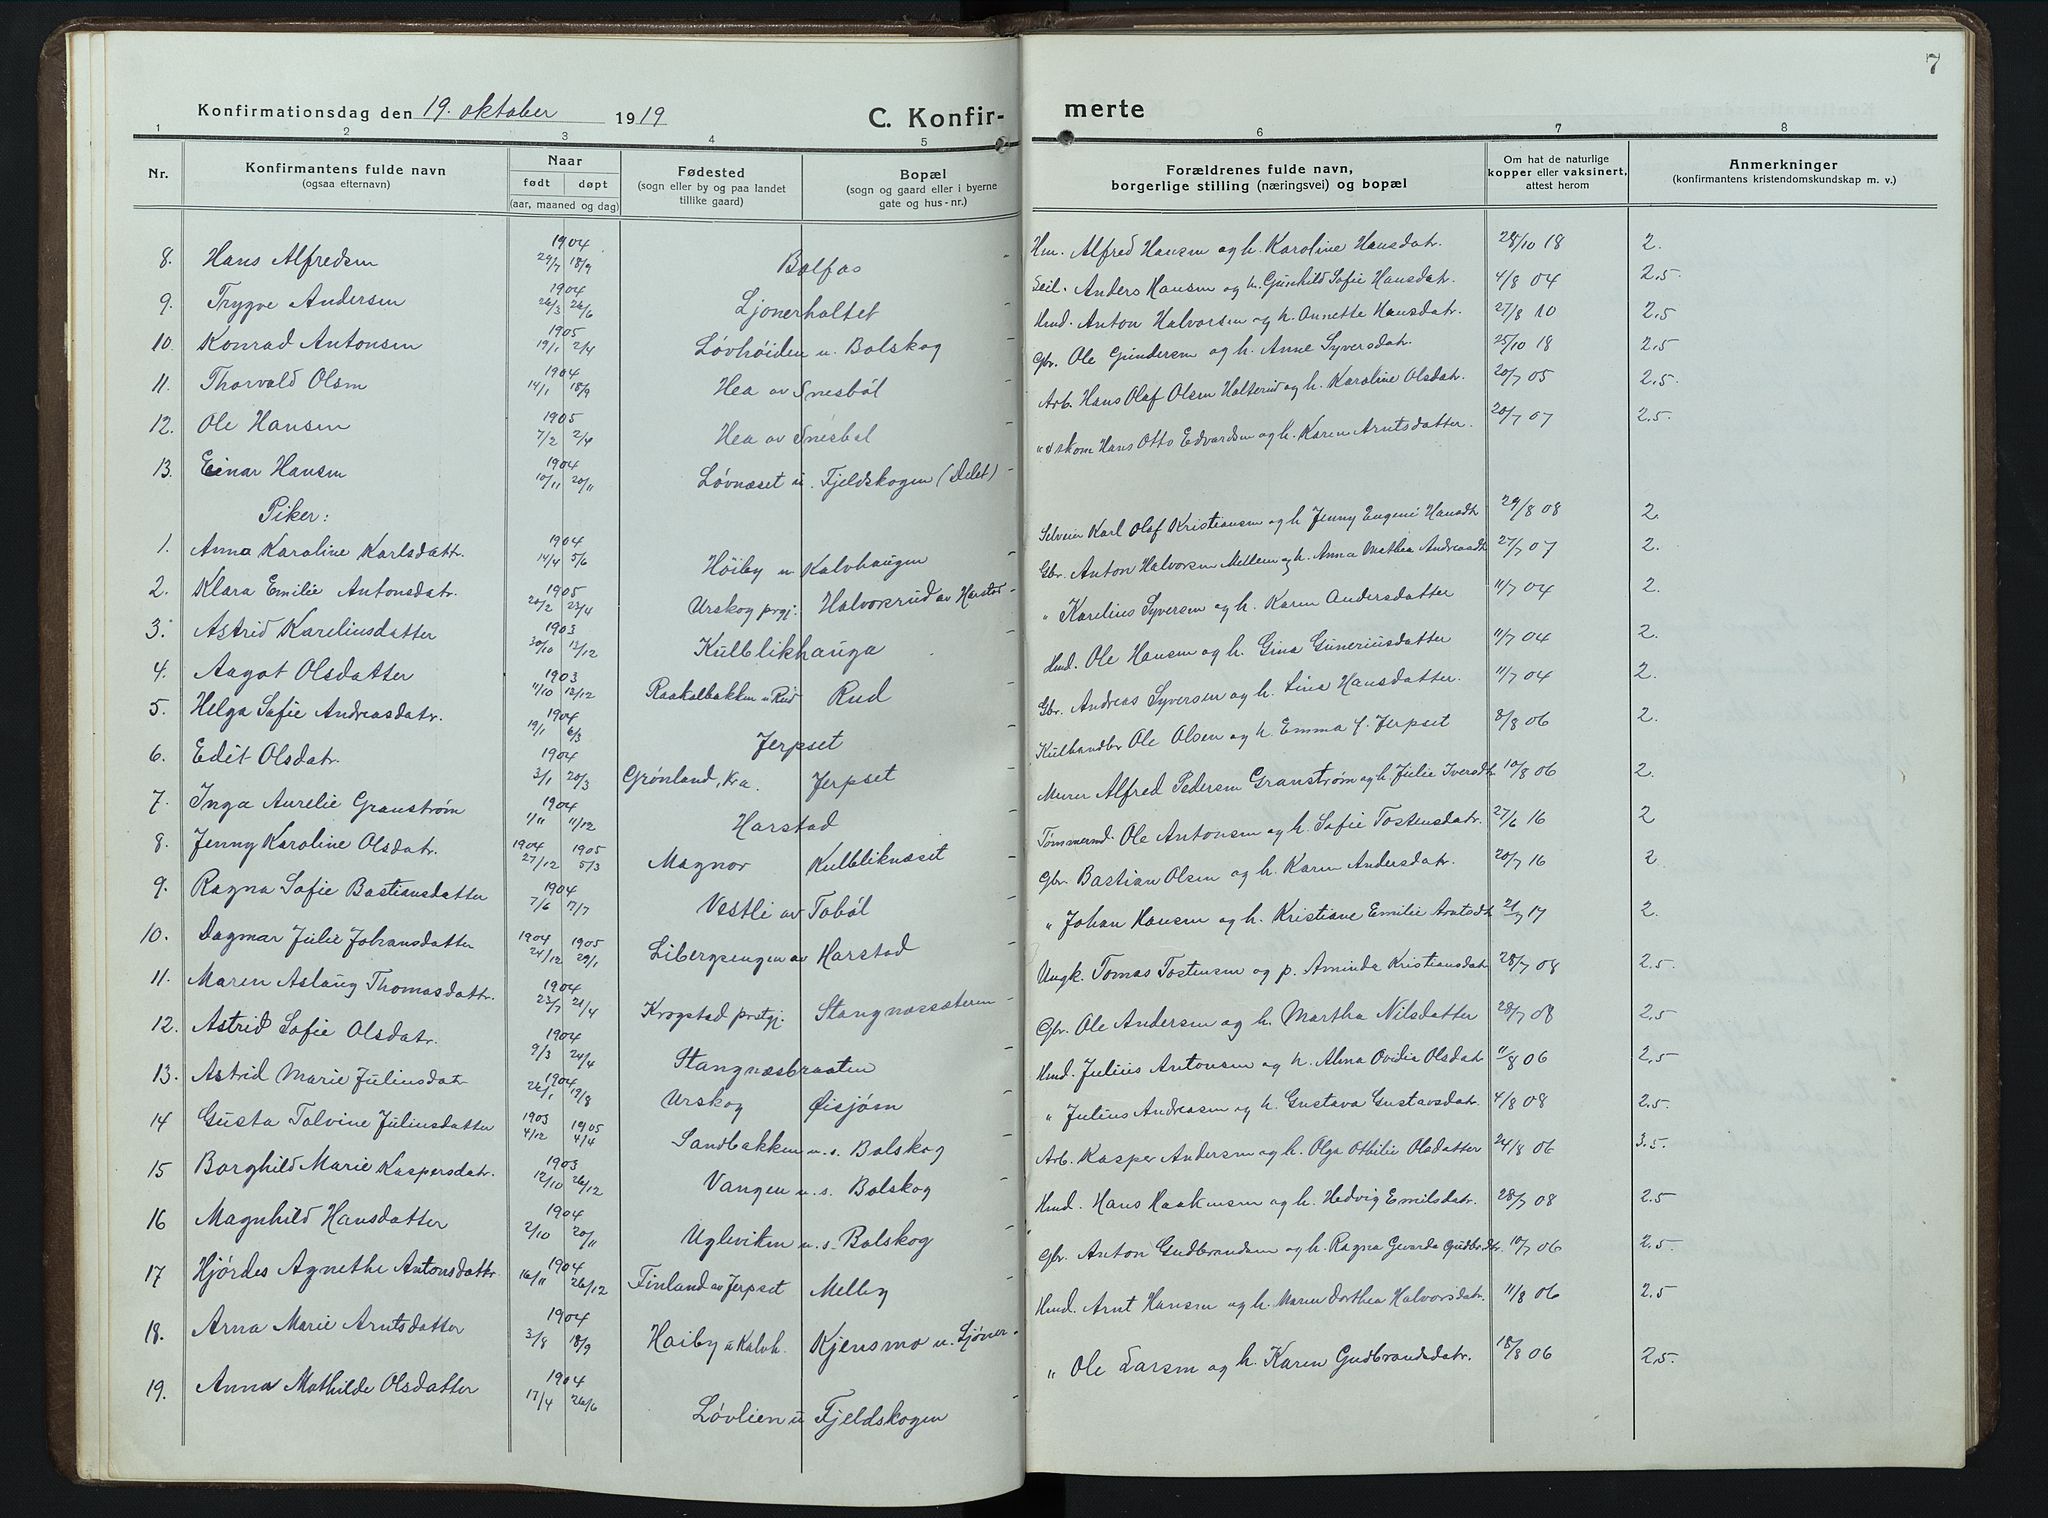 7
Konfirmationsdag den 19. oktober 1919
C. Konfir-
merte
1 2 3 4 5 6 7 8
Nr. Konfirmantens fulde navn (ogsaa efternavn) Naar født døpt (aar, maaned og dag) Fødested (sogn eller by og paa landet tillike gaard) Bopæl (sogn og gaard eller i byerne gate og hus-nr.) Forældrenes fulde navn, borgerlige stilling (næringsvei) og bopæl Om hat de naturlige kopper eller vaksinert, attest herom Anmerkninger (konfirmantens kristendomskundskap m. v.)
8. Hans Alfredsen 1904 29/7 18/9 Bolfos - Hm. Alfred Hansen og h. Karoline Hansdatr. 28/10 18 2.
9. Trygve Andersen 1904 26/3 26/6 Ljonerholtet - Anders Hansen og h. Gunhild Sofie Hansdatr. 4/8 04 2.5.
10. Konrad Antonsen 1905 19/1 2/4 Løvhøiden u. Bolskog - Hmd. Anton Halvorsen og h. Annette Hansdatr. 27/8 10 2.5
11. Thorvald Olsen 1904 14/1 18/9 Hea av Snesbøl - Gbr. Ole Gundersen og h. Anne Syversdatr. 25/10 18 2.5
12. Ole Hansen 1905 7/2 2/4 Hea av Snesbøl - Arb. Hans Olaf Olsen Holterud og h. Karoline Olsdatr. 20/7 05 2.5.
13. Einar Hansen 1904 10/11 20/11 Løvnæset u. Fjeldskogen (Delet) - " & skom Hans Otto Edvardsen og h. Karen Arntsdatter. 20/7 07 2.5.
Piker:
1. Anna Karoline Karlsdattr. 1904 14/4 5/6 Høiby u Kalvhaugen - Selveier Karl Olaf Kristiansen og h Jenny Eugeni Hansdt 29/8 08 2.
2. Klara Emilie Antonsdatr. 1905 20/2 23/4 Urskog prgj: Halvorsrud av Harstad - Gbr. Anton Halvorsen Mellem og h. Anna Mathea Andreasdt 27/7 07 2.
3. Astrid Kareliusdatter 1903 30/10 12/12 Kulblikhauga - " Karelius Syversen og h. Karen Andersdatter 11/7 04 2.
4. Aagot Olsdatter 1903 11/10 12/12 Raakalbakken u Rud Rud Hmd. Ole Hansen og h. Gina Guneriusdatter 11/7 04 2.
5. Helga Sofie Andreasdatr. 1904 19/1 6/3 Jerpset Gbr. Andreas Syversen og h. Lina Hansdatter. 11/7 04 2.
6. Edit Olsdatr. 1904 3/1 20/3 Grønland, Kra. Jerpset - Kulhandler Ole Olsen og h. Emma f. Jerpset 8/8 06 2.
7. Inga Aurelie Granstrøm 1904 1/11 11/12 Harstad - Murer Alfred Pedersen Granstrøm og h. Julie Iversdt 10/8 06 2.
8. Jenny Karoline Olsdatr. 1904 27/12 1905 5/3 Magnor Kulbliknæset - Tømmermd. Ole Antonsen og h. Sofie Tostensdatr. 27/6 16 2
9. Ragna Sofie Bastiansdatter 1904 7/6 17/7 Vestli av Tobøl - Gbr. Bastian Olsen og h. Karen Andersdatr. 20/7 16 2
10. Dagmar Julie Johansdatter 1904 24/12 1905 29/1 Libergsengen av Harstad - " Johan Hansen og h. Kristiane Emilie Arntsdt 21/7 17 2.
11. Maren Aslaug Thomasdattr. 1904 23/7 21/4 Krogstad prstgj. Stangnæssæteren - Ungk. Tomas Tostensen og p. Aminda Kristiansdatr 28/7 08 2.5.
12. Astrid Sofie Olsdatr. 1904 9/3 24/4 Stangnæsbraaten - Gbr. Ole Andersen og h. Martha Nilsdatter 28/7 08 2.5
13. Astrid Marie Juliusdatr 1904 26/1 19/8 Urskog Øisjøen - Hmd. Julius Antonsen og h. Alma Ovidia Olsdatr 11/8 06 2.5
14 Gusta Tolvine Juliusdatter 1903 4/12 1905 4/4 Sandbakken u. s. Bolskog - " Julius Andreasen og h. Gustava Gustavsdatr. 4/8 08 2.5.
15 Borghild Marie Kaspersdatr. 1903 12/10 26/12 Vangen u. s. Bolskog - Arb. Kasper Andersen og h. Olga Othilie Olsdatter 24/8 06 3.5.
16 Magnhild Hansdatter 1904 2/10 20/11 Ugleviken u. s. Bolskog - Hmd. Hans Haakensen og h. Hedvig Emilsdatr. 28/7 08 2.5
17 Hjørdes Agnethe Antonsdattr. 1904 16/11 26/12 Finland av Jerpset Melby - Gbr. Anton Gudbrandsen og h. Ragna Gerarda Gudbr.dtr. 10/7 06 2.5.
18. Arna Marie Arntsdatter 1904 3/8 18/9 Haiby u Kalvh. Kjensmo u. Ljøner - Hmd. Arnt Hansen og h. Maren Dorthea Halvorsdatr. 11/8 06 2.5
19. Anna Mathilde Olsdatter 1904 17/4 26/6 Løvlien u Fjeldskogen " Ole Larsen og h. Karen Gudbrandsdatr. 18/8 06 2.5.